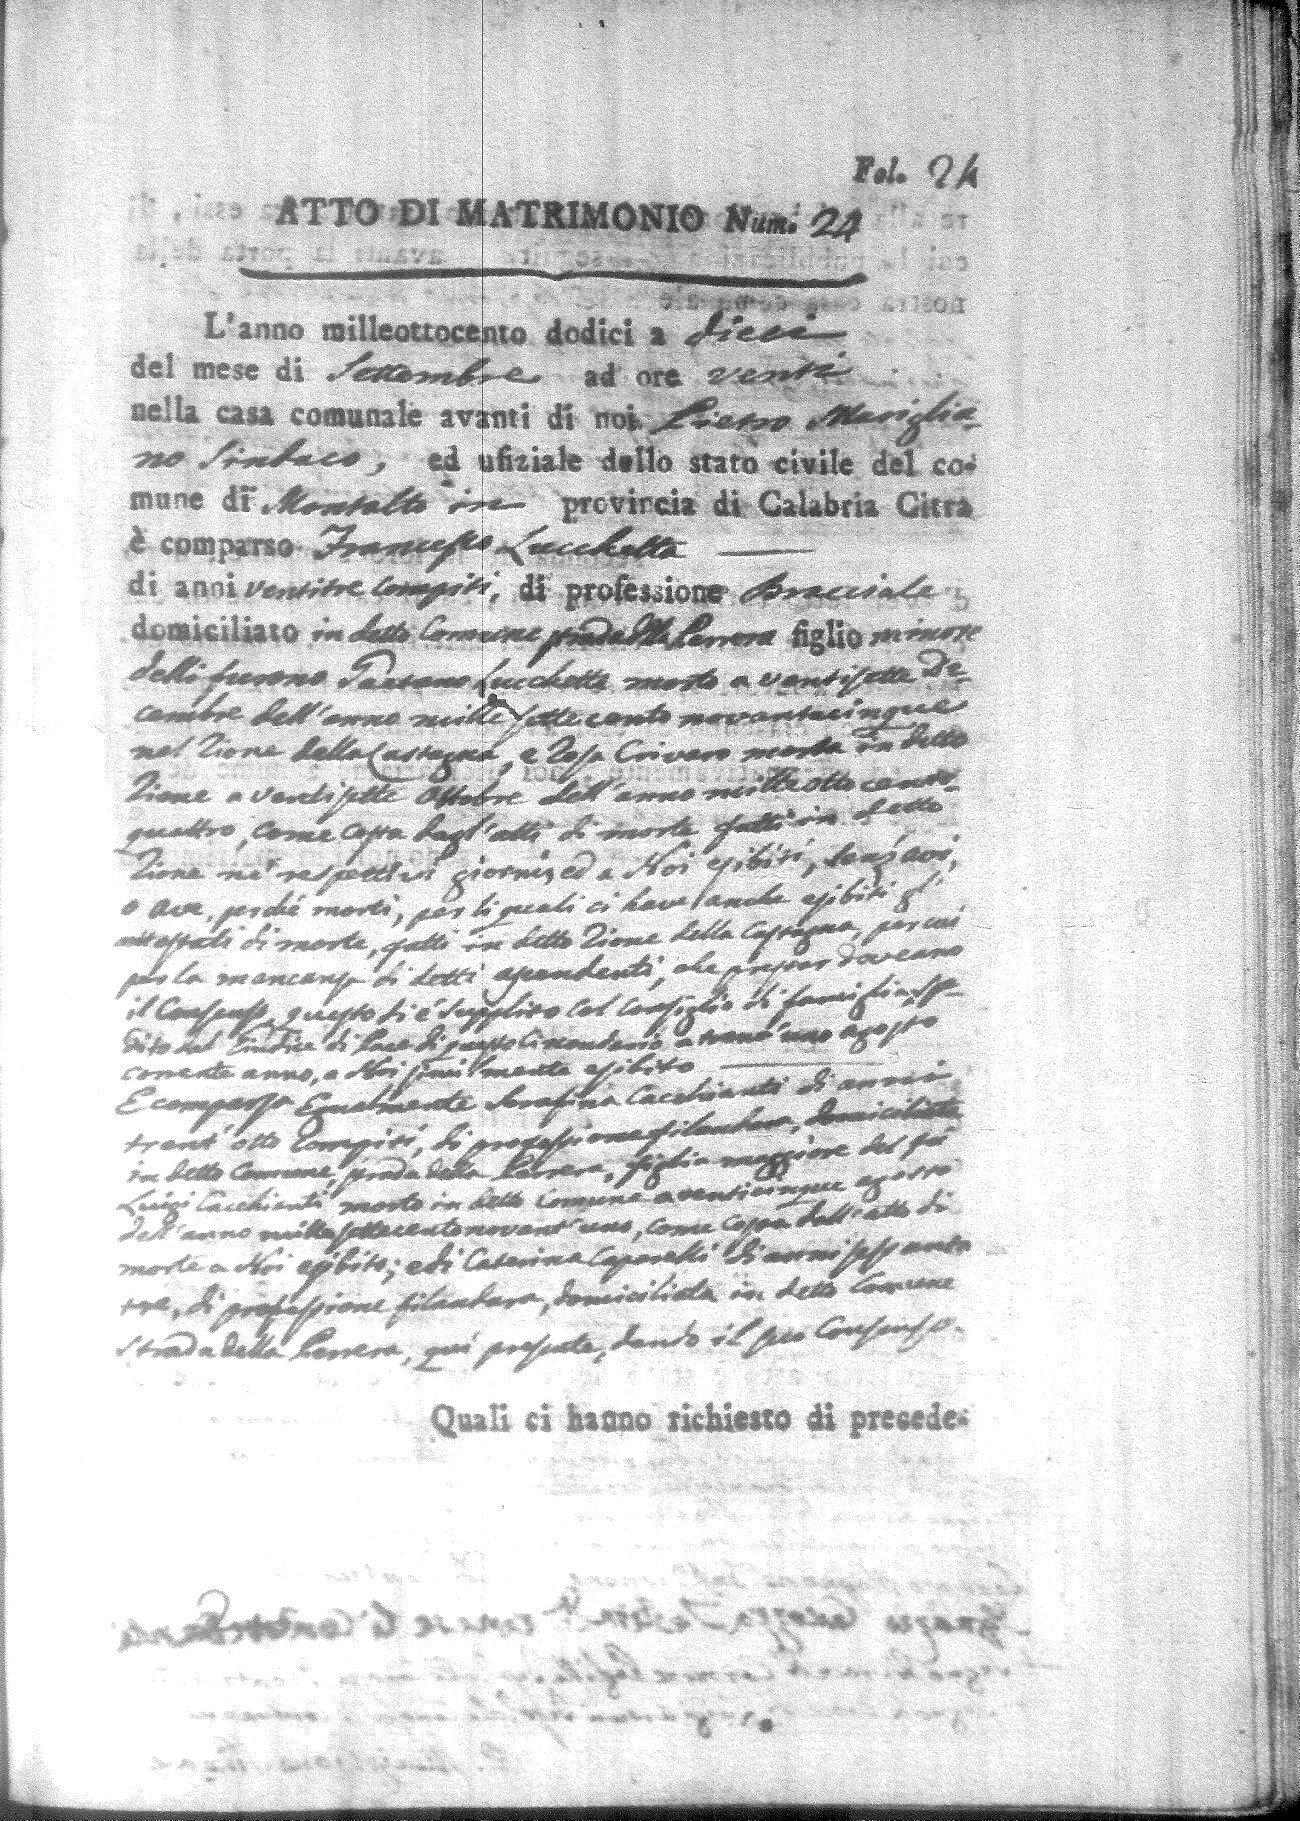 Fol. 24
ATTO DI MATRIMONIO Num. 24
L'anno milleottocento dodici a dieci
del mese di Settembre ad ore venti
nella casa comunale avanti di noi Pietro Mariglia-
no Sindaco, ed ufiziale dello stato civile del co-
mune di Montalto in provincia di Calabria Citra
è comparso Francesco Lucchetta
di anni ventitre compiti, di professione Bracciale
domiciliato in detto Comune strada della Perrera figlio minore
delli furono Gaetano Lucchetta morto a ventisette De-
cembre dell'anno mille settecento novantacinque
nel Rione della Castagna, e Rosa Crivaro morta in detto
Rione a ventisette Ottobre dell'anno mille otto cento
quattro, come costa dagl'atti di morte fatti in detto
Rione ne' respettivi giorni, ed a Noi esibiti, senz'avi,
o ave, perché morti, per li quali ci have anche esibiti gl'
attestati di morte, fatti in detto Rione della Castagna, per cui
per la mancanza di detti ascendenti, che prestar doveano
il Consenso, questo si è supplito col Consiglio di famiglia, spe-
dito dal Giudice di Pace di questo Circondario a trent'uno agosto
corrente anno, a Noi similmente esibito
E comparsa Egualmente Serafina Cacchianti di anni
trent'otto compiti, di professione filandara, domiciliata
in detto Comune, strada della Perrera, figlia maggiore del fù
Luigi Cacchianti morto in detto Comune a venticinque agosto
dell'anno mille settecento novant'uno, come costa dall'atto di
morte a Noi esibito; e di Caterina Caparelli di anni sessanta
tre, di professione filandara, domiciliata in detto Comune
strada della Perrera, qui presente, dando il suo Consenso.
Quali ci hanno richiesto di precede-